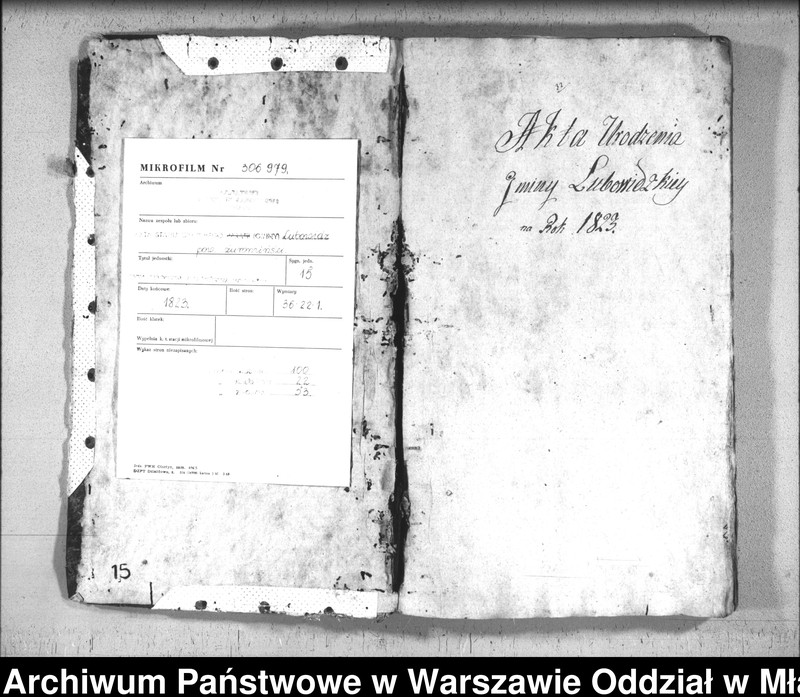 MIKROFILM Nr 306 979.
Archiwum
Nazwa zespołu lub zbioru:
Lubowidz
pow.
Tytuł jednostki:
Sygn. jedn.
15
Daty końcowe:
Ilość stron:
Wymiary
1823.
36·22·1.
Ilość klatek:
Wypełnia k. t. stacji mikrofilmowej
Wykaz stron nieszpisanych:
100
22
53
15
Akta Urodzenia
Gminy Lubowidzkiey
na Rok 1823.
Archiwum Państwowe w Warszawie Oddział w